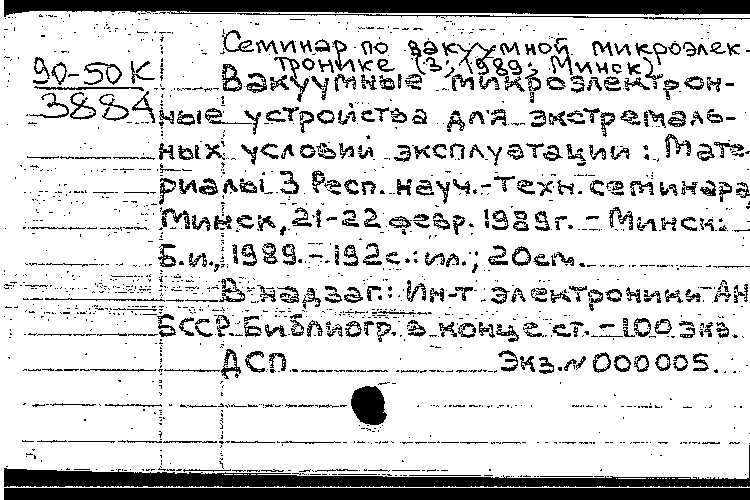 Семинар по вакуумной микроэлек-
тронике (3; 1989; Минск)
90-50К
3884
Вакуумные микроэлектрон-
ные устройства для экстремаль-
ных условий эксплуатации : Мате-
риалы 3 Респ. науч.-техн. семинара,
Минск, 21-22 февр. 1989г. - Минск:
Б.и., 1989. - 192с.: ил.; 20см.
В надзаг.: Ин-т электроники АН
БССР. Библиогр. в конце ст. - 100 экз.
ДСП. Экз. № 000005.